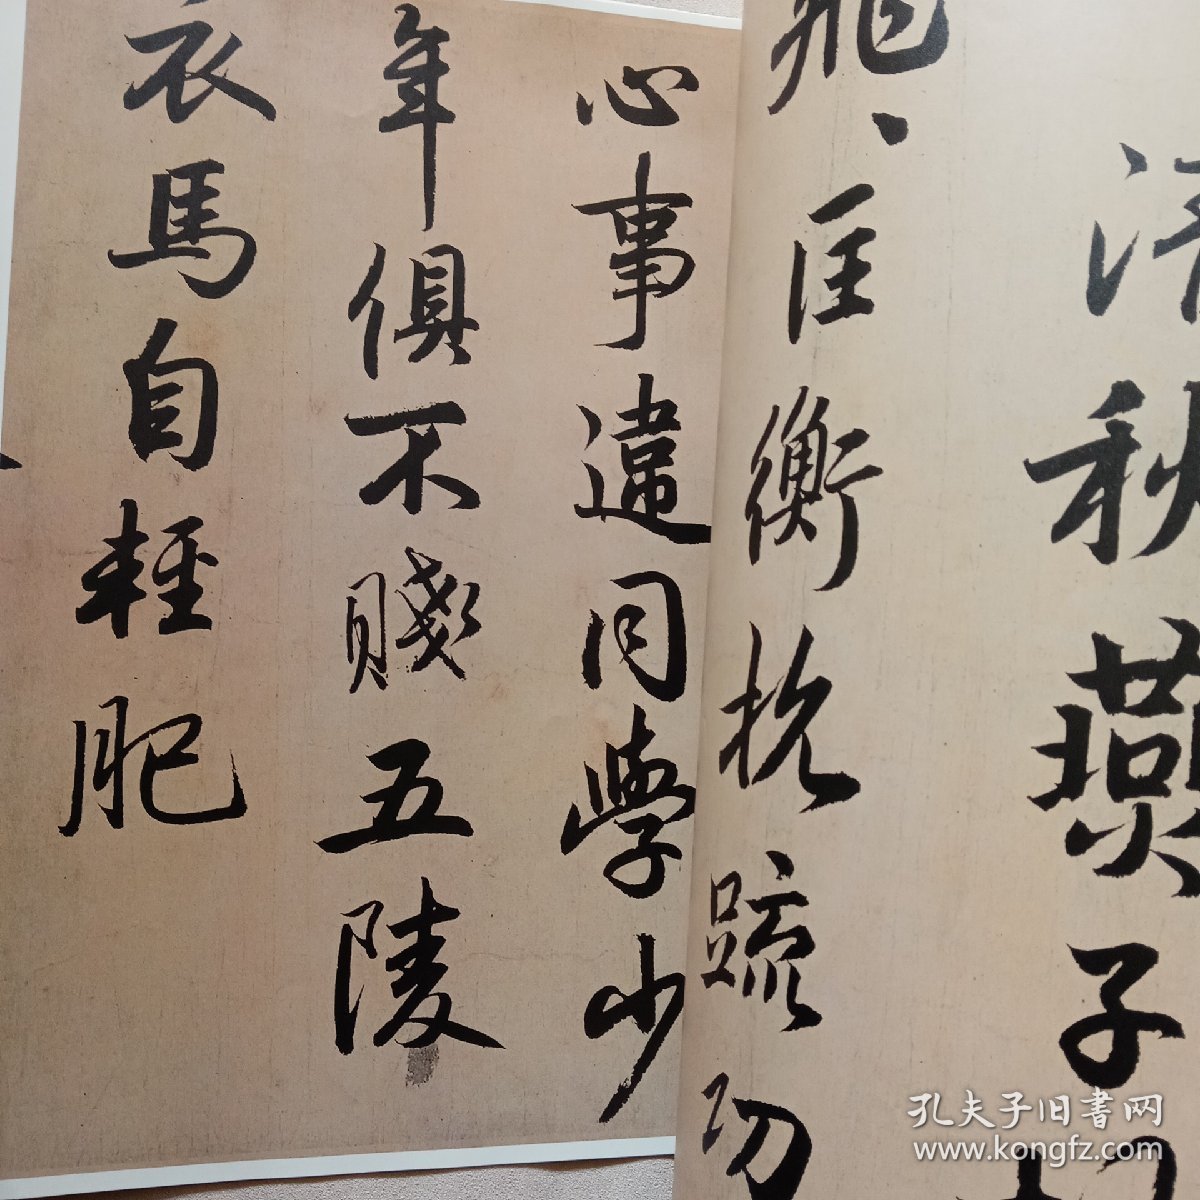 清秋燕子
飛、匡衡抗疏功
心事違同學少
年俱不賤五陵
衣馬自輕肥
孔夫子旧書网
www.kongfz.com